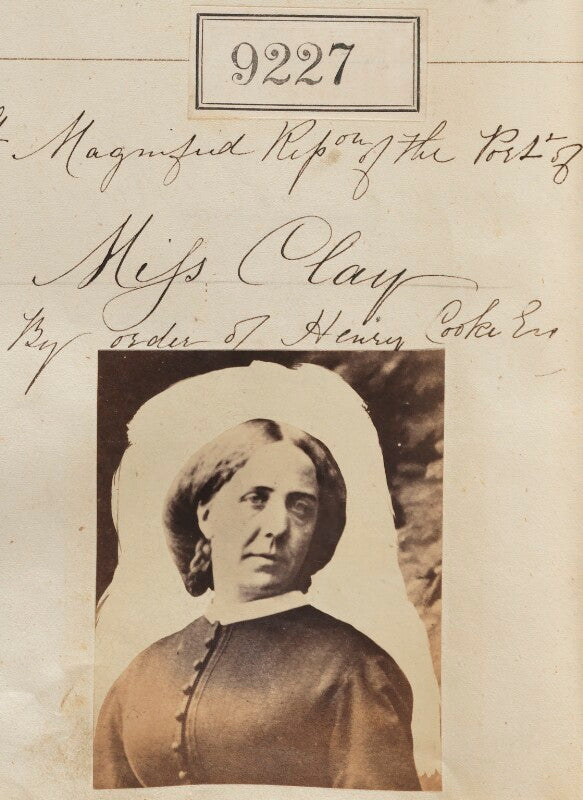 9227
Magnified Repon of the Port of
Miss Clay
By order of Henry Cooke Esq